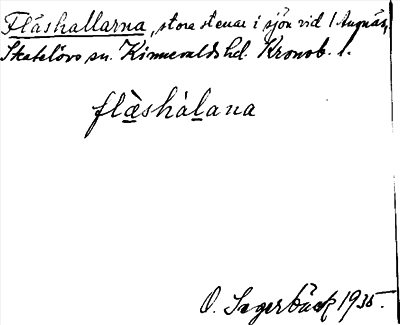 Fläshallarna, stora stenar i sjön vid
Skatelövs sn. Kinnevalds hd. Kronob. l.
flàshálana
O. Segerbäck 1935.